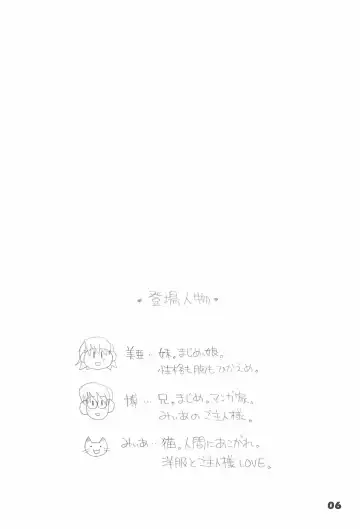 ・登場人物・
美亜・妹。まじめっ娘。
性格も胸もひかえめ。
博…兄。まじめ。マンガ家。
みぃあのご主人様。
みぃあ…猫。人間にあこがれ。
洋服とご主人様LOVE。
06